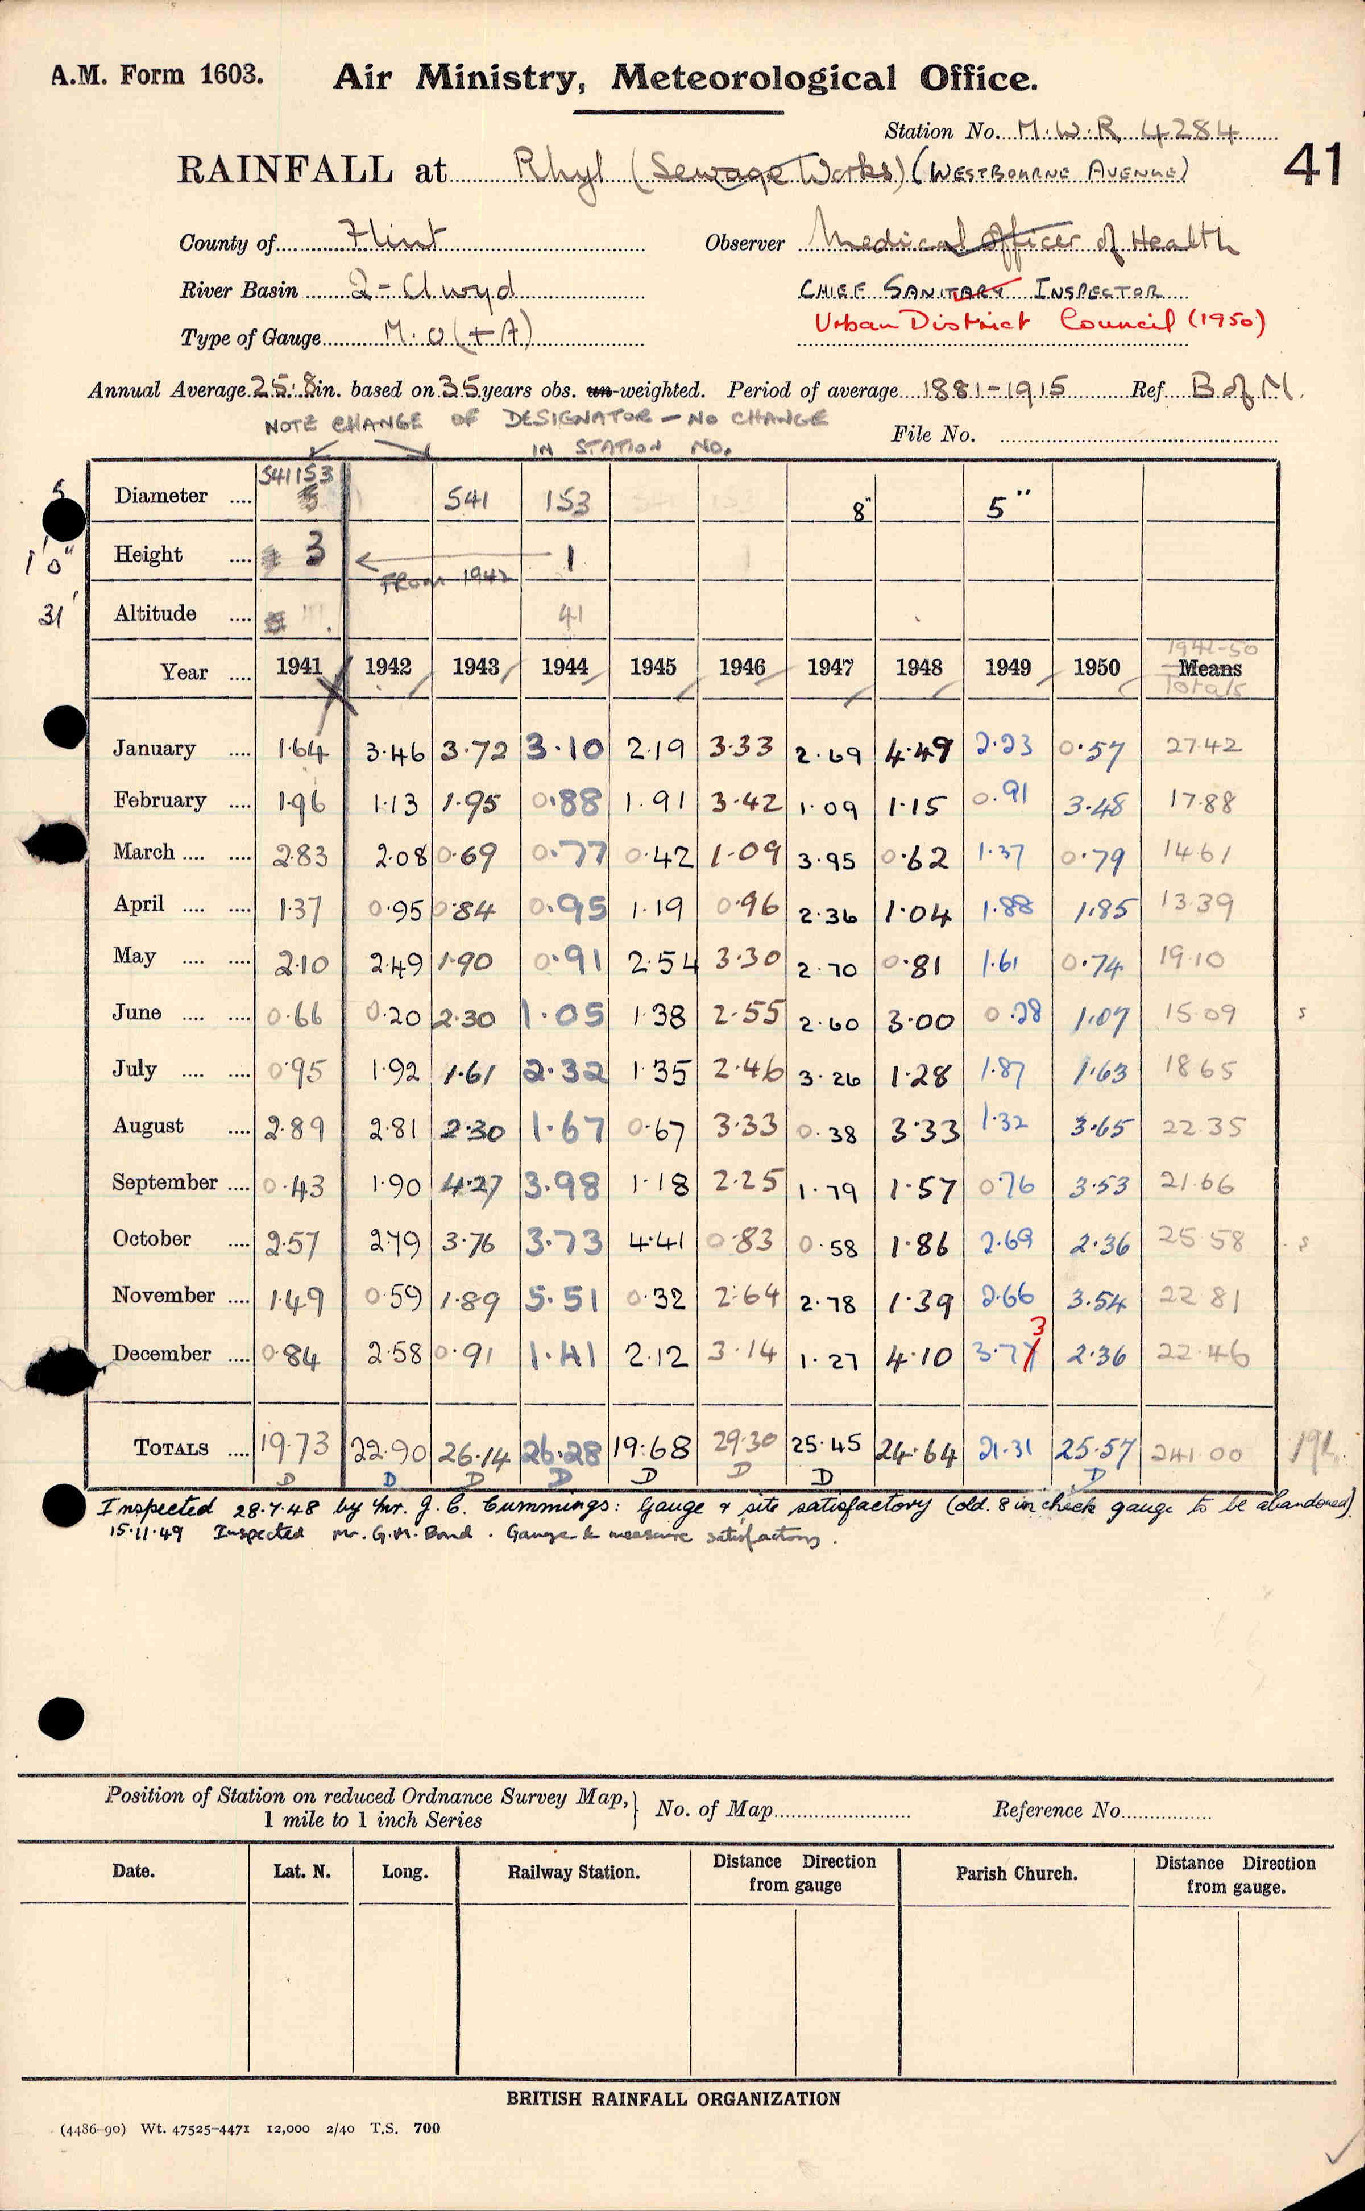 A.M. Form 1603. Air Ministry, Meteorological Office.
Station No. M.W.R. 4284
41
RAINFALL at Rhyl (Sewage Works) (WESTBOURNE AVENUE)
County of Flint Observer Medical Officer of Health
River Basin 2-Clwyd CHIEF SANITARY INSPECTOR
Urban District Council (1950)
Type of Gauge M.O (+A)
Annual Average 25.8 in. based on 35 years obs. un-weighted. Period of average 1881-1915 Ref. B of M.
NOTE CHANGE OF DESIGNATOR - NO CHANGE
IN STATION NO.
File No.
541153
5 Diameter .... 5 541 153 8" 5"
1'0" Height .... 3 1
FROM 1942
31' Altitude .... 41
1941-50
Year .... 1941 1942 1943 1944 1945 1946 1947 1948 1949 1950 Means
Totals
January .... 1.64 3.46 3.72 3.10 2.19 3.33 2.69 4.49 2.23 0.57 27.42
February .... 1.96 1.13 1.95 0.88 1.91 3.42 1.09 1.15 0.91 3.48 17.88
March .... .... 2.83 2.08 0.69 0.77 0.42 1.09 3.95 0.62 1.37 0.79 14.61
April .... .... 1.37 0.95 0.84 0.95 1.19 0.96 2.36 1.04 1.88 1.85 13.39
May .... .... 2.10 2.49 1.90 0.91 2.54 3.30 2.70 0.81 1.61 0.74 19.10
June .... .... 0.66 0.20 2.30 1.05 1.38 2.55 2.60 3.00 0.28 1.07 15.09 s
July .... .... 0.95 1.92 1.61 2.32 1.35 2.46 3.26 1.28 1.87 1.63 18.65
August .... 2.89 2.81 2.30 1.67 0.67 3.33 0.38 3.33 1.32 3.65 22.35
September .... 0.43 1.90 4.27 3.98 1.18 2.25 1.79 1.57 0.76 3.53 21.66
October .... 2.57 2.79 3.76 3.73 4.41 0.83 0.58 1.86 2.69 2.36 25.58 s
November .... 1.49 0.59 1.89 5.51 0.32 2.64 2.78 1.39 2.66 3.54 22.81
3
December .... 0.84 2.58 0.91 1.41 2.12 3.14 1.27 4.10 3.77 2.36 22.46
TOTALS .... 19.73 22.90 26.14 26.28 19.68 29.30 25.45 24.64 21.31 25.57 241.00
D D D D D D D D
Inspected 28.7.48 by Mr. J. C. Cummings: Gauge & site satisfactory (old 8 in check gauge to be abandoned).
15.11.49 Inspected Mr. G.M. Bond. Gauge & measure satisfactory.
Position of Station on reduced Ordnance Survey Map,
1 mile to 1 inch Series
No. of Map Reference No.
Date. Lat. N. Long. Railway Station. Distance Direction from gauge Parish Church. Distance Direction from gauge.
BRITISH RAINFALL ORGANIZATION
(4486-90) Wt. 47525-4471 12,000 2/40 T.S. 700